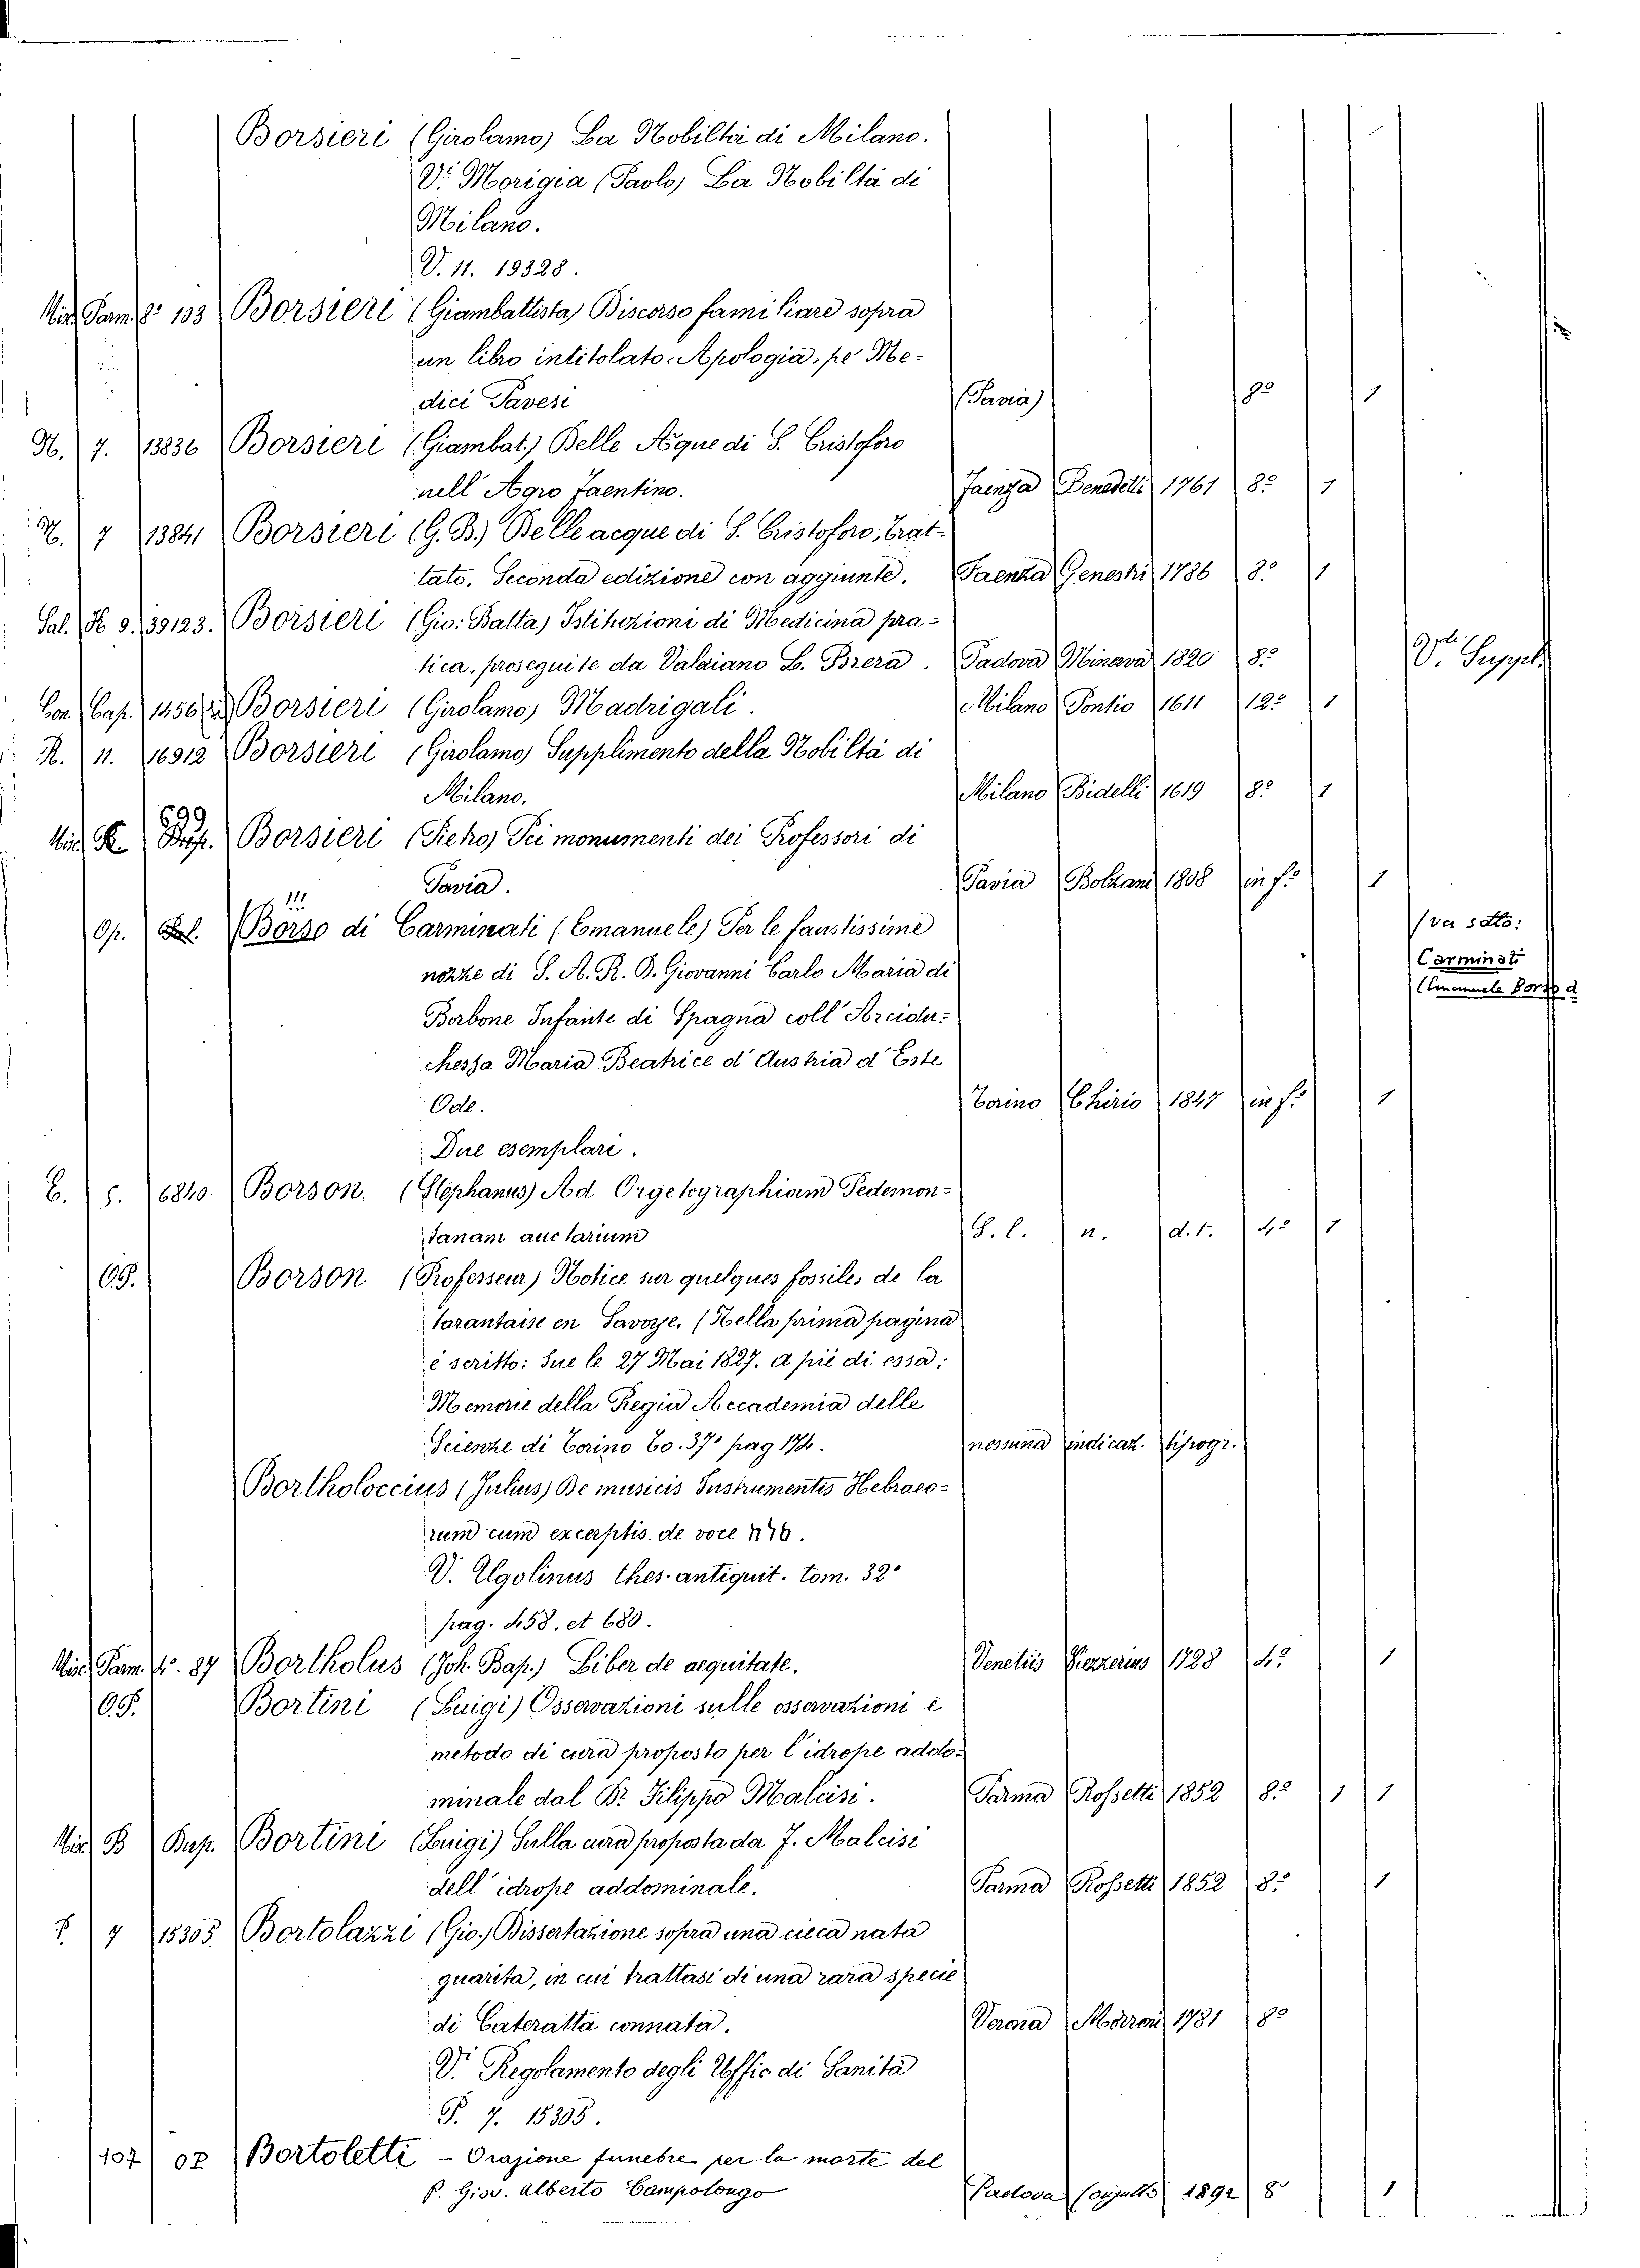 Borsieri (Girolamo) La Nobiltà di Milano.
V. Morigia (Paolo) La Nobiltà di
Milano.
V. 11. 19328.
Mis. Parm. 8° 133 Borsieri (Giambattista) Discorso famigliare sopra
un libro intitolato: Apologia, pe' Me-
dici Pavesi (Pavia) 8° 1
N. 7. 13836 Borsieri (Giambat.) Delle Aque di S. Cristoforo
nell' Agro Faentino. Faenza Benedetti 1761 8° 1
N. 7 13841 Borsieri (G. B.) Delle acque di S. Cristoforo, Trat-
tato, Seconda edizione con aggiunte. Faenza Genestri 1786 8° 1
Sal. N 9. 39123. Borsieri (Gio: Batta) Istituzioni di Medicina pra-
tica, proseguite da Valeriano L. Brera. Padova Minerva 1820 8° V. Suppl.
Con. Cap. 1456 Borsieri (Girolamo) Madrigali. Milano Pontio 1611 12° 1
R. 11. 16912 Borsieri (Girolamo) Supplimento della Nobiltà di
Milano. Milano Bidelli 1619 8° 1
699
Borsieri (Pietro) Dei monumenti dei Professori di
Pavia. Pavia Bolzani 1808 in f° 1
111
Op. Sal. Borso di Carminati (Emanuele) Per le faustissime
nozze di S. A. R. D. Giovanni Carlo Maria di
Borbone Infante di Spagna coll' Arcidu-
chessa Maria Beatrice d'Austria d'Este
Ode. Torino Chirio 1847 in f° 1
(va sotto:
Carminati
(Emanuele Borso d
Due esemplari.
E. 5. 6840. Borson. (Stephanus) Ad Orgetographiam Pedemon-
tanam auctarium S. l. n. d. t. 4° 1
OS. Borson (Professeur) Notice sur quelques fossiles de la
tarantaise en Savoye. (Nella prima pagina
è scritto: Sue le 27 Mai 1827. a piè di essa:
Memorie della Regia Accademia delle
Scienze di Torino To. 37° pag 174. nessuna indicaz. tipogr.
Bortholoccius (Julius) De musicis Instrumentis Hebraeo-
rum cum excerptis. de voce
V. Ugolinus thes. antiquit. tom. 32°
pag. 458. et 680.
Mis. Parm. 4°. 87 Bortholus (Joh. Bap.) Liber de aequitate. Venetiis Piezzerius 1728 4° 1
OS. Bortini (Luigi) Osservazioni sulle osservazioni e
metodo di cura proposto per l'idrope addo-
minale dal Dr. Filippo Malcisi. Parma Rossetti 1852 8° 1 1
Mis. B Dup. Bortini (Luigi) Sulla cura proposta da F. Malcisi
dell' idrope addominale. Parma Rossetti 1852 8° 1
P. 7 15305. Bortolazzi (Gio.) Dissertazione sopra una cieca nata
guarita, in cui trattasi di una rara specie
di Cateratta connata. Verona Moroni 1781 8°
V. Regolamento degli Uffic di Sanità
P. 7. 15305.
107 OP Bortoletti - Orazione funebre per la morte del
P. Giov. Alberto Campolongo Padova Conzatti 1692 8° 1